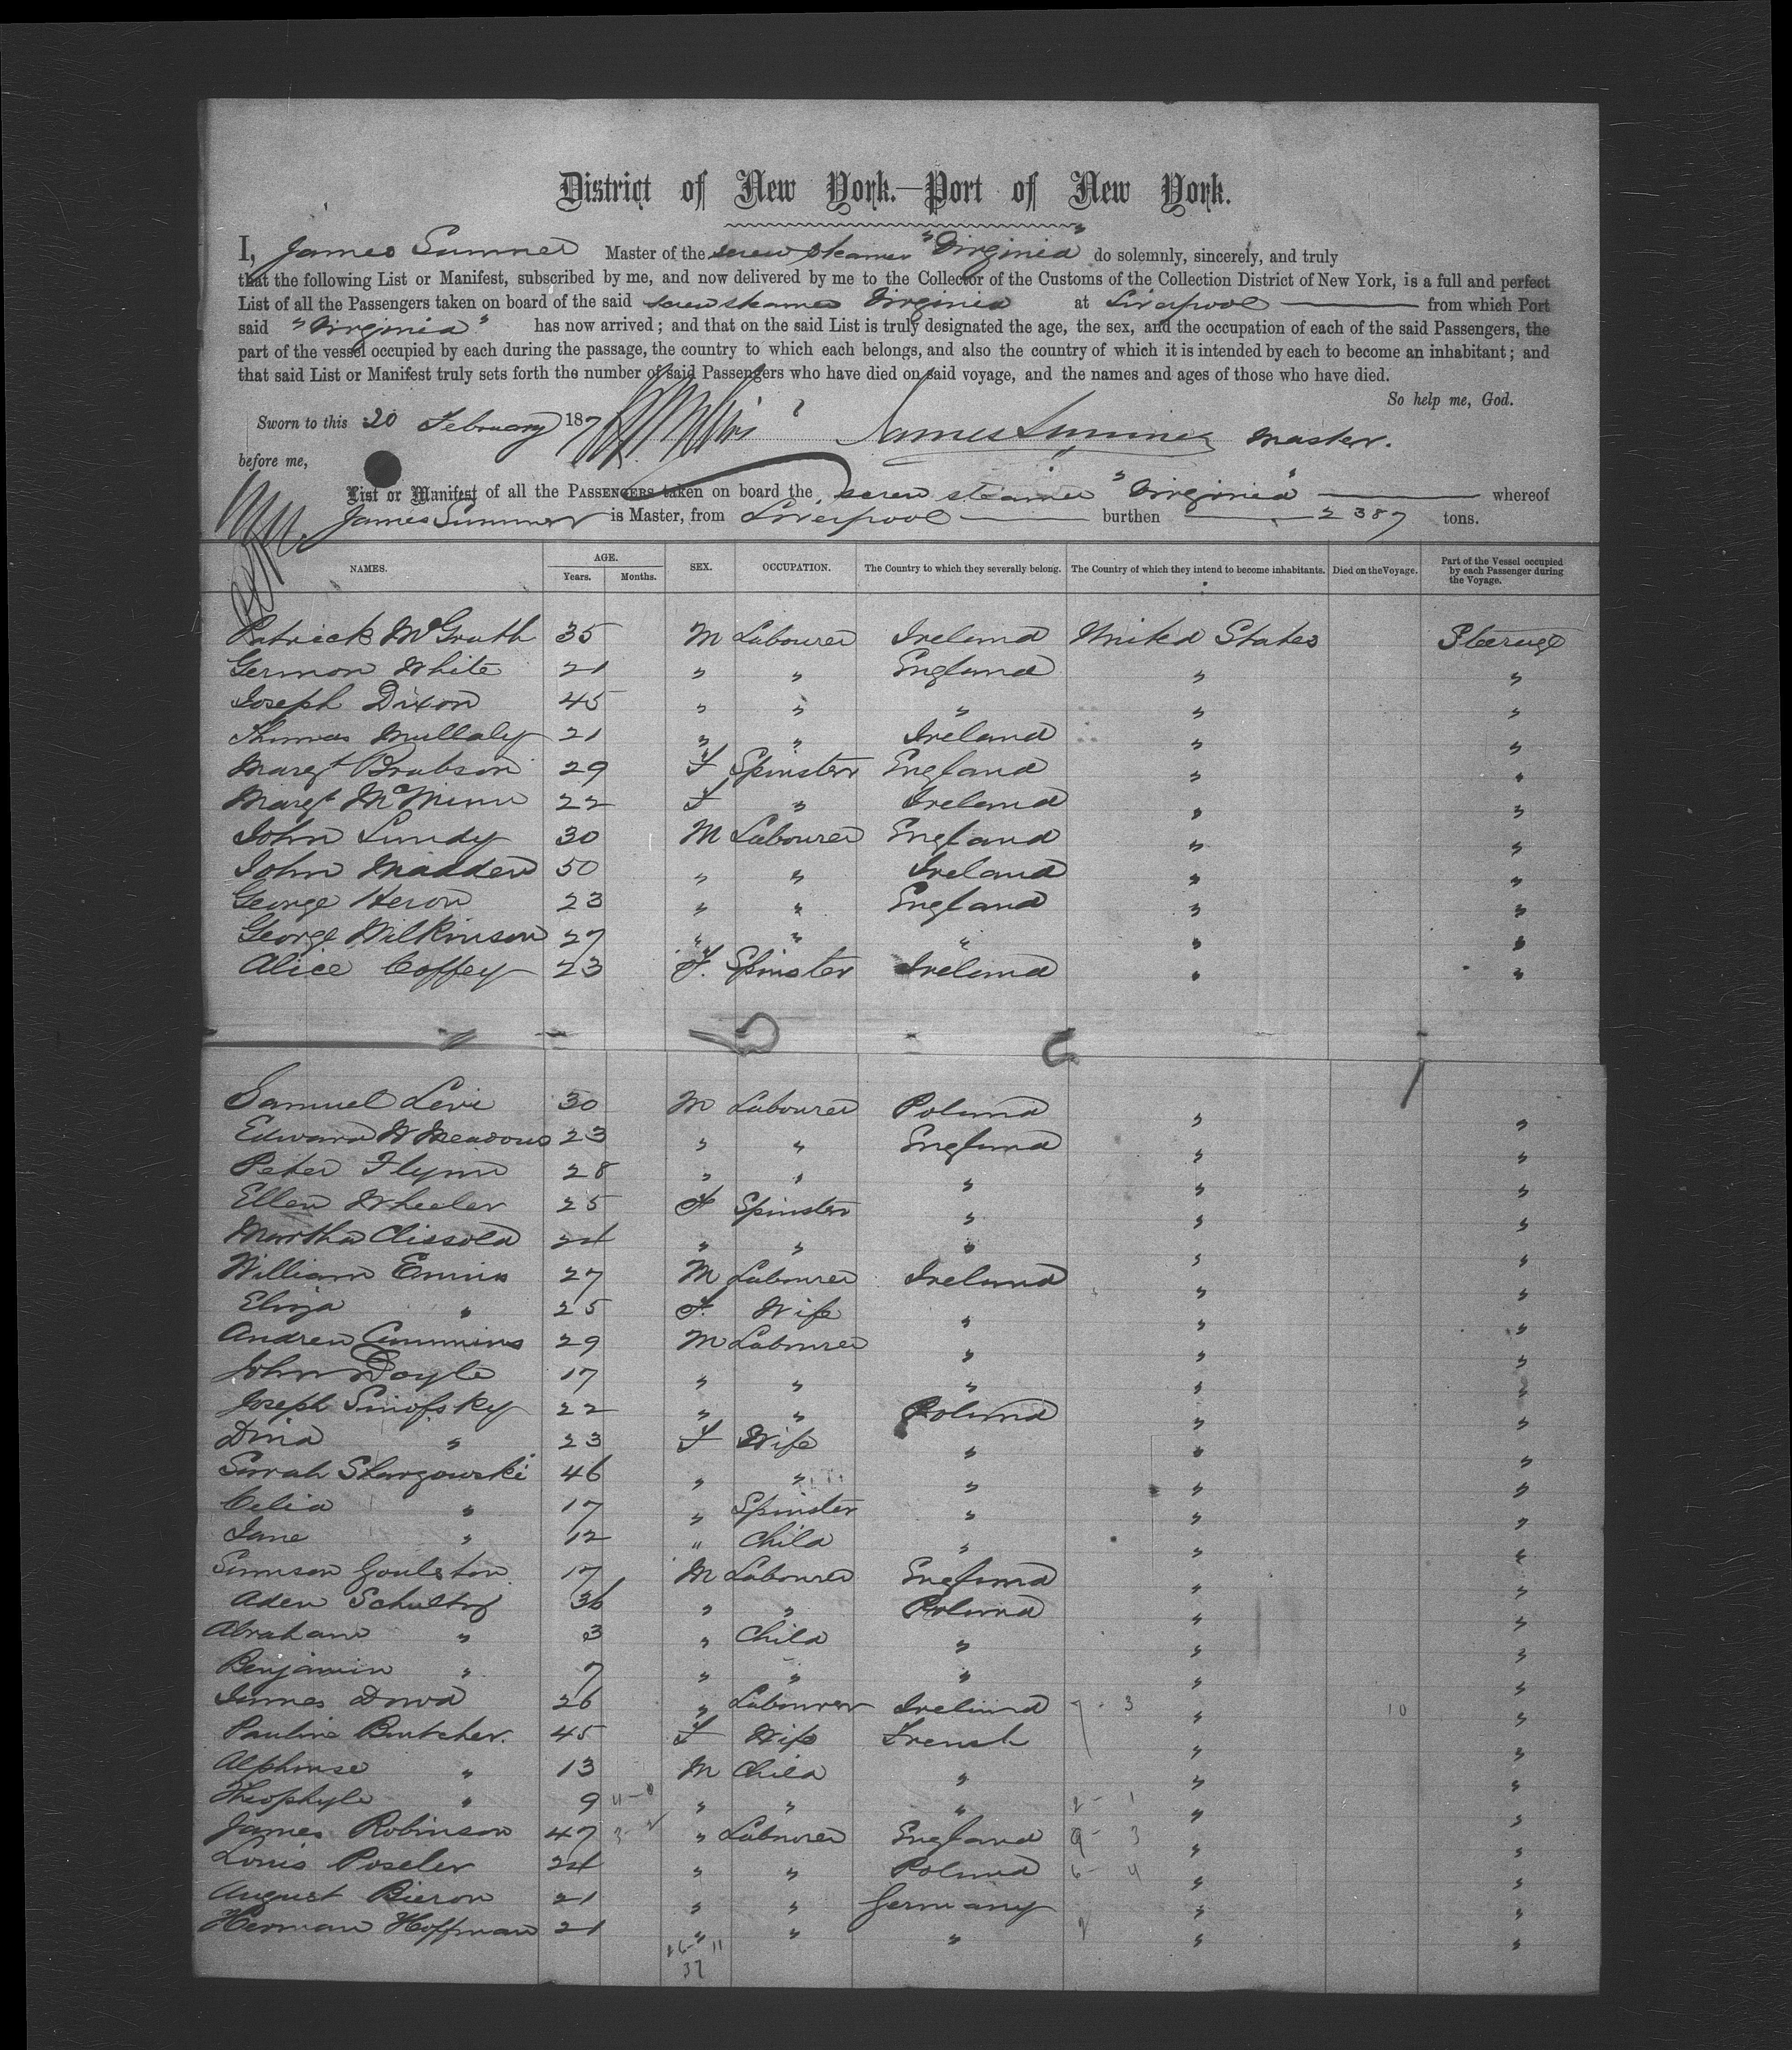 District of New York.—Port of New York.
I, James Sumner Master of the screw steamer "Virginia" do solemnly, sincerely, and truly
that the following List or Manifest, subscribed by me, and now delivered by me to the Collector of the Customs of the Collection District of New York, is a full and perfect
List of all the Passengers taken on board of the said screw steamer Virginia at Liverpool from which Port
said "Virginia" has now arrived; and that on the said List is truly designated the age, the sex, and the occupation of each of the said Passengers, the
part of the vessel occupied by each during the passage, the country to which each belongs, and also the country of which it is intended by each to become an inhabitant; and
that said List or Manifest truly sets forth the number of said Passengers who have died on said voyage, and the names and ages of those who have died.
So help me, God.
Sworn to this 20 February 187 James Sumner Master.
before me,
List or Manifest of all the PASSENGERS taken on board the screw steamer "Virginia" whereof
James Sumner is Master, from Liverpool burthen 2387 tons.
NAMES. AGE. Years. Months. SEX. OCCUPATION. The Country to which they severally belong. The Country of which they intend to become inhabitants. Died on the Voyage. Part of the Vessel occupied by each Passenger during the Voyage.
Patrick McGrath 35 M Labourer Ireland United States Steerage
Germon White 21 " " England " "
Joseph Dixon 45 " " " " "
Thomas Mullaly 21 " " Ireland " "
Margt Brabson 29 F Spinster England " "
Margt McMinn 22 F " Ireland " "
John Lundy 30 M Labourer England " "
John Madden 50 " " Ireland " "
George Heron 23 " " England " "
George Wilkinson 27 " " " " "
Alice Coffey 23 F. Spinster Ireland " "
Samuel Levi 30 M Labourer Poland " "
Edward W Meadows 23 " " England " "
Peter Flynn 28 " " " " "
Ellen Wheeler 25 F Spinster " " "
Martha Clissold 24 " " " " "
William Ennis 27 M Labourer Ireland " "
Eliza " 25 F. Wife " " "
Andrew Cummins 29 M Labourer " " "
John Doyle 17 " " " " "
Joseph Sinofsky 22 " " Poland " "
Dina " 23 F Wife " " "
Sarah Shargowski 46 " " " " "
Celia " 17 " Spinster " " "
Jane " 12 " Child " " "
Samson Goulston 17 M Labourer England " "
Aden Schultz 36 " " Poland " "
Abraham " 3 " Child " " "
Benjamin " 7 " " " " "
James Dowd 26 " Labourer Ireland 3 " 10 "
Pauline Butcher. 45 F Wife French " "
Alphonse " 13 M Child " " "
Theophyle " 9 " " " " "
James Robinson 47 " Labourer England 9 - 3 " "
Louis Poseler 24 " " Poland 6 - 4 " "
August Bieron 21 " " Germany " "
Herman Hoffman 21 " " " " "
37